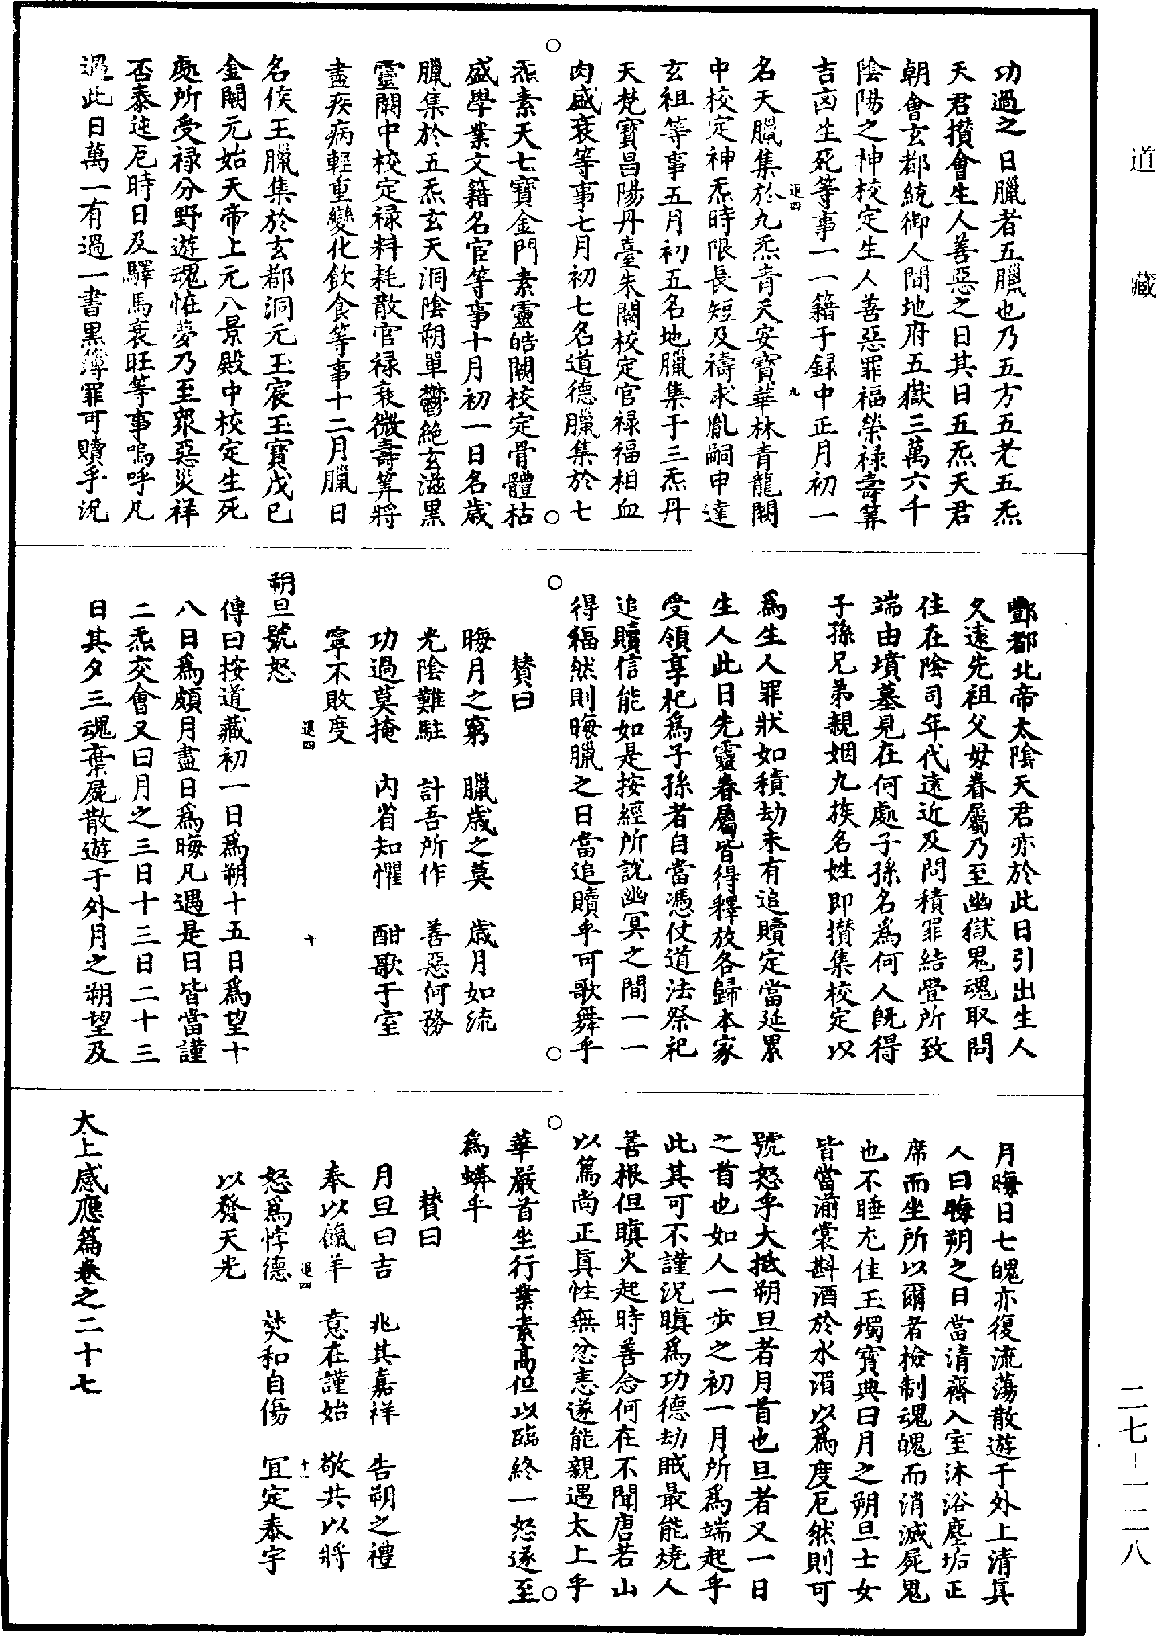 道藏
功過之日臘者五臘也乃五方五老五炁
天君攢會生人善惡之日其日五炁天君
朝會玄都統御人間地府五嶽三萬六千
陰陽之神校定生人善惡罪福榮祿壽筭
吉凶生死等事一一籍于録中正月初一
退四
九
名天臘集於九炁青天安寶華林青龍闕
中校定神炁時限長短及禱求胤嗣申達
玄祖等事五月初五名地臘集于三炁丹
天梵寶昌陽丹臺朱闕校定官祿福相血
肉盛衰等事七月初七名道德臘集於七
炁素天七寶金門素靈皓闕校定骨體枯
盛學業文籍名官等事十月初一日名歲
臘集於五炁玄天洞陰朔單鬱絶玄滋黑
靈闕中校定禄料耗散官禄衰微壽筭將
盡疾病輕重變化飲食等事十二月臘日
名侯王臘集於玄都洞元玉宸玉寳戊巳
金闕元始天帝上元八景殿中校定生死
處所受禄分野遊魂恠夢乃至衆惡災祥
否泰迍厄時日及驛馬衰旺等事嗚呼凡
遇此日萬一有過一書黒簿罪可贖乎況
酆都北帝太陰天君亦於此日引出生人
久遠先祖父母眷屬乃至幽獄鬼魂取問
住在陰司年代遠近及問積罪結舋所致
端由墳墓見在何處子孫名爲何人既得
子孫兄弟親姻九族名姓即攅集校定以
爲生人罪狀如積劫未有追贖定當延累
生人此日先靈眷屬皆得釋放各歸本家
受領享祀爲子孫者自當憑仗道法祭祀
追贖信能如是按經所説幽冥之間一一
得福然則晦臘之日當追贖乎可歌舞乎
賛曰
晦月之窮　臘歲之莫　歲月如流
光陰難駐　計吾所作　善惡何務
功過莫掩　内省知懼　酣歌于室
寧不敗度
退四
十
朔旦號怒
傳曰按道藏初一日爲朔十五日爲望十
八日爲頗月盡日爲晦凡遇是日皆當謹
二炁交會又曰月之三日十三日二十三
日其夕三魂棄屍散遊于外月之朔望及
月晦日七魄亦復流蕩散遊于外上清真
人曰晦朔之日當清齋入室沐浴塵垢正
席而坐所以爾者檢制魂魄而消滅屍鬼
也不睡尤佳玉燭寶典曰月之朔旦士女
皆當湔裳斟酒於水湄以爲度厄然則可
號怒乎大抵朔旦者月首也旦者又一日
之首也如人一步之初一月所爲端起乎
此其可不謹況瞋爲功德劫賊最能燒人
善根但瞋火起時善念何在不聞唐若山
以篤尚正真性無忿恚遂能親遇太上乎
華嚴首坐行業素高但以臨終一怒遂至
爲蟒乎
賛曰
月旦曰吉　兆其嘉祥　告朔之禮
奉以餼羊　意在謹始　敬共以將
退四
十一
怒爲悖德　焚和自傷　宜定泰宇
以發天光
太上感應篇卷之二十七
二七-一二八